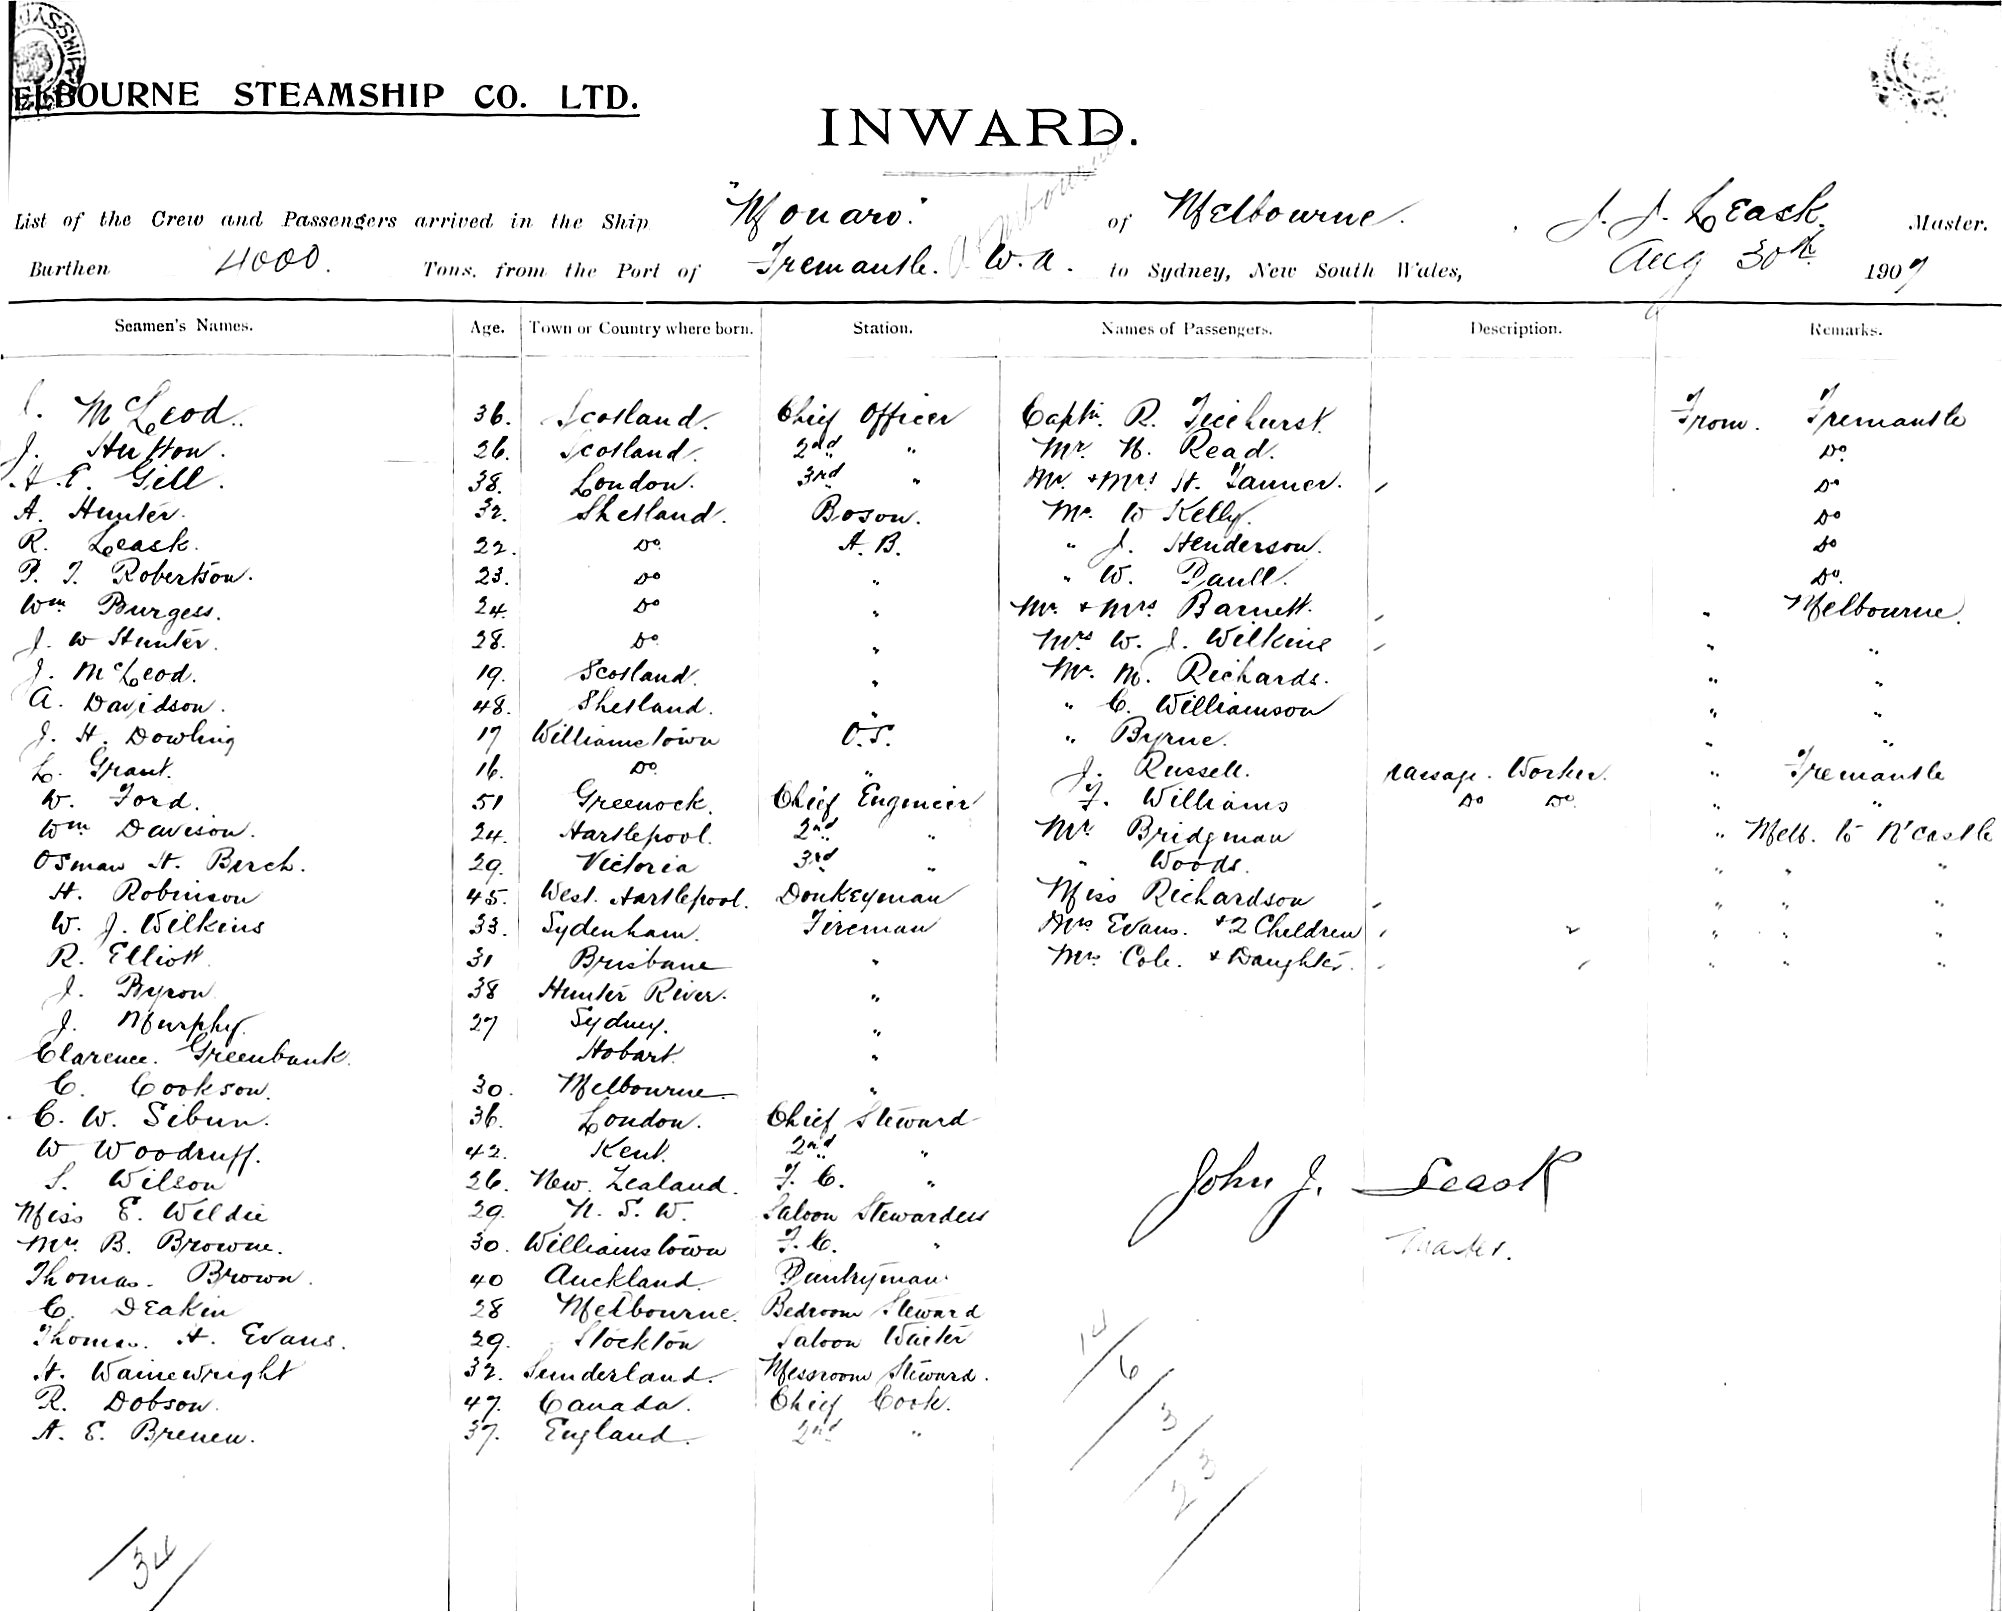 ELBOURNE STEAMSHIP CO. LTD.
INWARD.
List of the Crew and Passengers arrived in the Ship "Monaro." of Melbourne. J. J. Leask. Master.
Burthen 4000. Tons, from the Port of Fremantle. W.A. to Sydney, New South Wales, Aug 30th 1907
Seamen's Names. Age. Town or Country where born. Station. Names of Passengers. Description. Remarks.
McLeod. 36. Scotland. Chief Officer Captn. R. Ticehurst. From. Fremantle
J. Hutton. 26. Scotland. 2nd " Mr. H. Read. Do.
A. E. Gill. 38. London. 3rd " Mr. + Mrs H. Tanner. Do
A. Hunter. 32. Shetland. Boson. Mr. W Kelly. Do
R. Leask. 22. Do. A. B. " J. Henderson. Do
P. J. Robertson. 23. Do " " W. Paull. Do.
Wm Burgess. 24. Do " Mr. + Mrs Barnett. " Melbourne.
J. W Hunter. 28. Do. " Mrs W. J. Wilkins " "
J. McLeod. 19. Scotland. " Mr. M. Richards. " "
A. Davidson. 48. Shetland. " " C. Williamson " "
J. H. Dowling 17 Williamstown O.S. " Byrne. " "
L. Grant. 16. Do. " J. Russell. Passage. Worker. " Fremantle
W. Ford. 51 Greenock. Chief Engineer F. Williams Do Do. " "
Wm Davison. 24. Hartlepool. 2nd " Mr. Bridgman " Melb. to N'castle
Osman H. Birch. 29. Victoria 3rd " " Woods. " " "
H. Robinson 45. West. Hartlepool. Donkeyman Miss Richardson " " "
W. J. Wilkins 33. Sydenham. Fireman Mrs Evans. + 2 Children 2 " " "
R. Elliott 31 Brisbane " Mrs Cole. + Daughter. " " "
J. Byron 38 Hunter River. "
J. Murphy. 27 Sydney. "
Clarence. Greenbank. Hobart. "
C. Cookson. 30. Melbourne. "
C. W. Sibun. 36. London. Chief Steward
W Woodruff. 42. Kent. 2nd "
S. Wilson 26. New. Zealand. F. C. "
Miss E. Weldie 29. N. S. W. Saloon Stewardess
Mrs B. Browne. 30. Williamstown F. C. "
Thomas. Brown. 40 Auckland. Pantryman.
C. Deakin 28 Melbourne. Bedroom Steward
Thomas. H. Evans. 29. Stockton Saloon Waiter
H. Wainewright 32. Sunderland. Messroom Steward.
R. Dobson. 47. Canada. Chief Cook.
A. E. Brenen. 37. England. 2nd "
John J. Leask
Master.
14/6/3/23
34